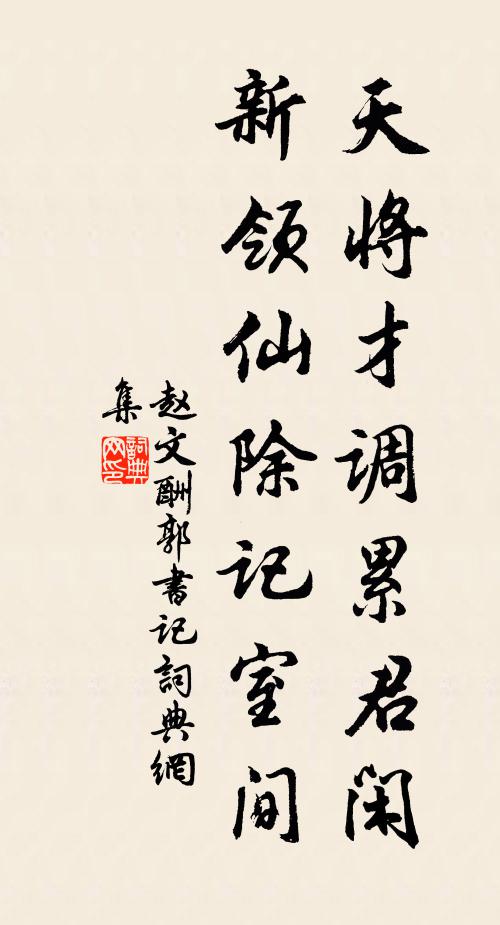 天将才调累君闲
新领仙除记室间
赵文酬郭书记詞典網
集
詞典
网印